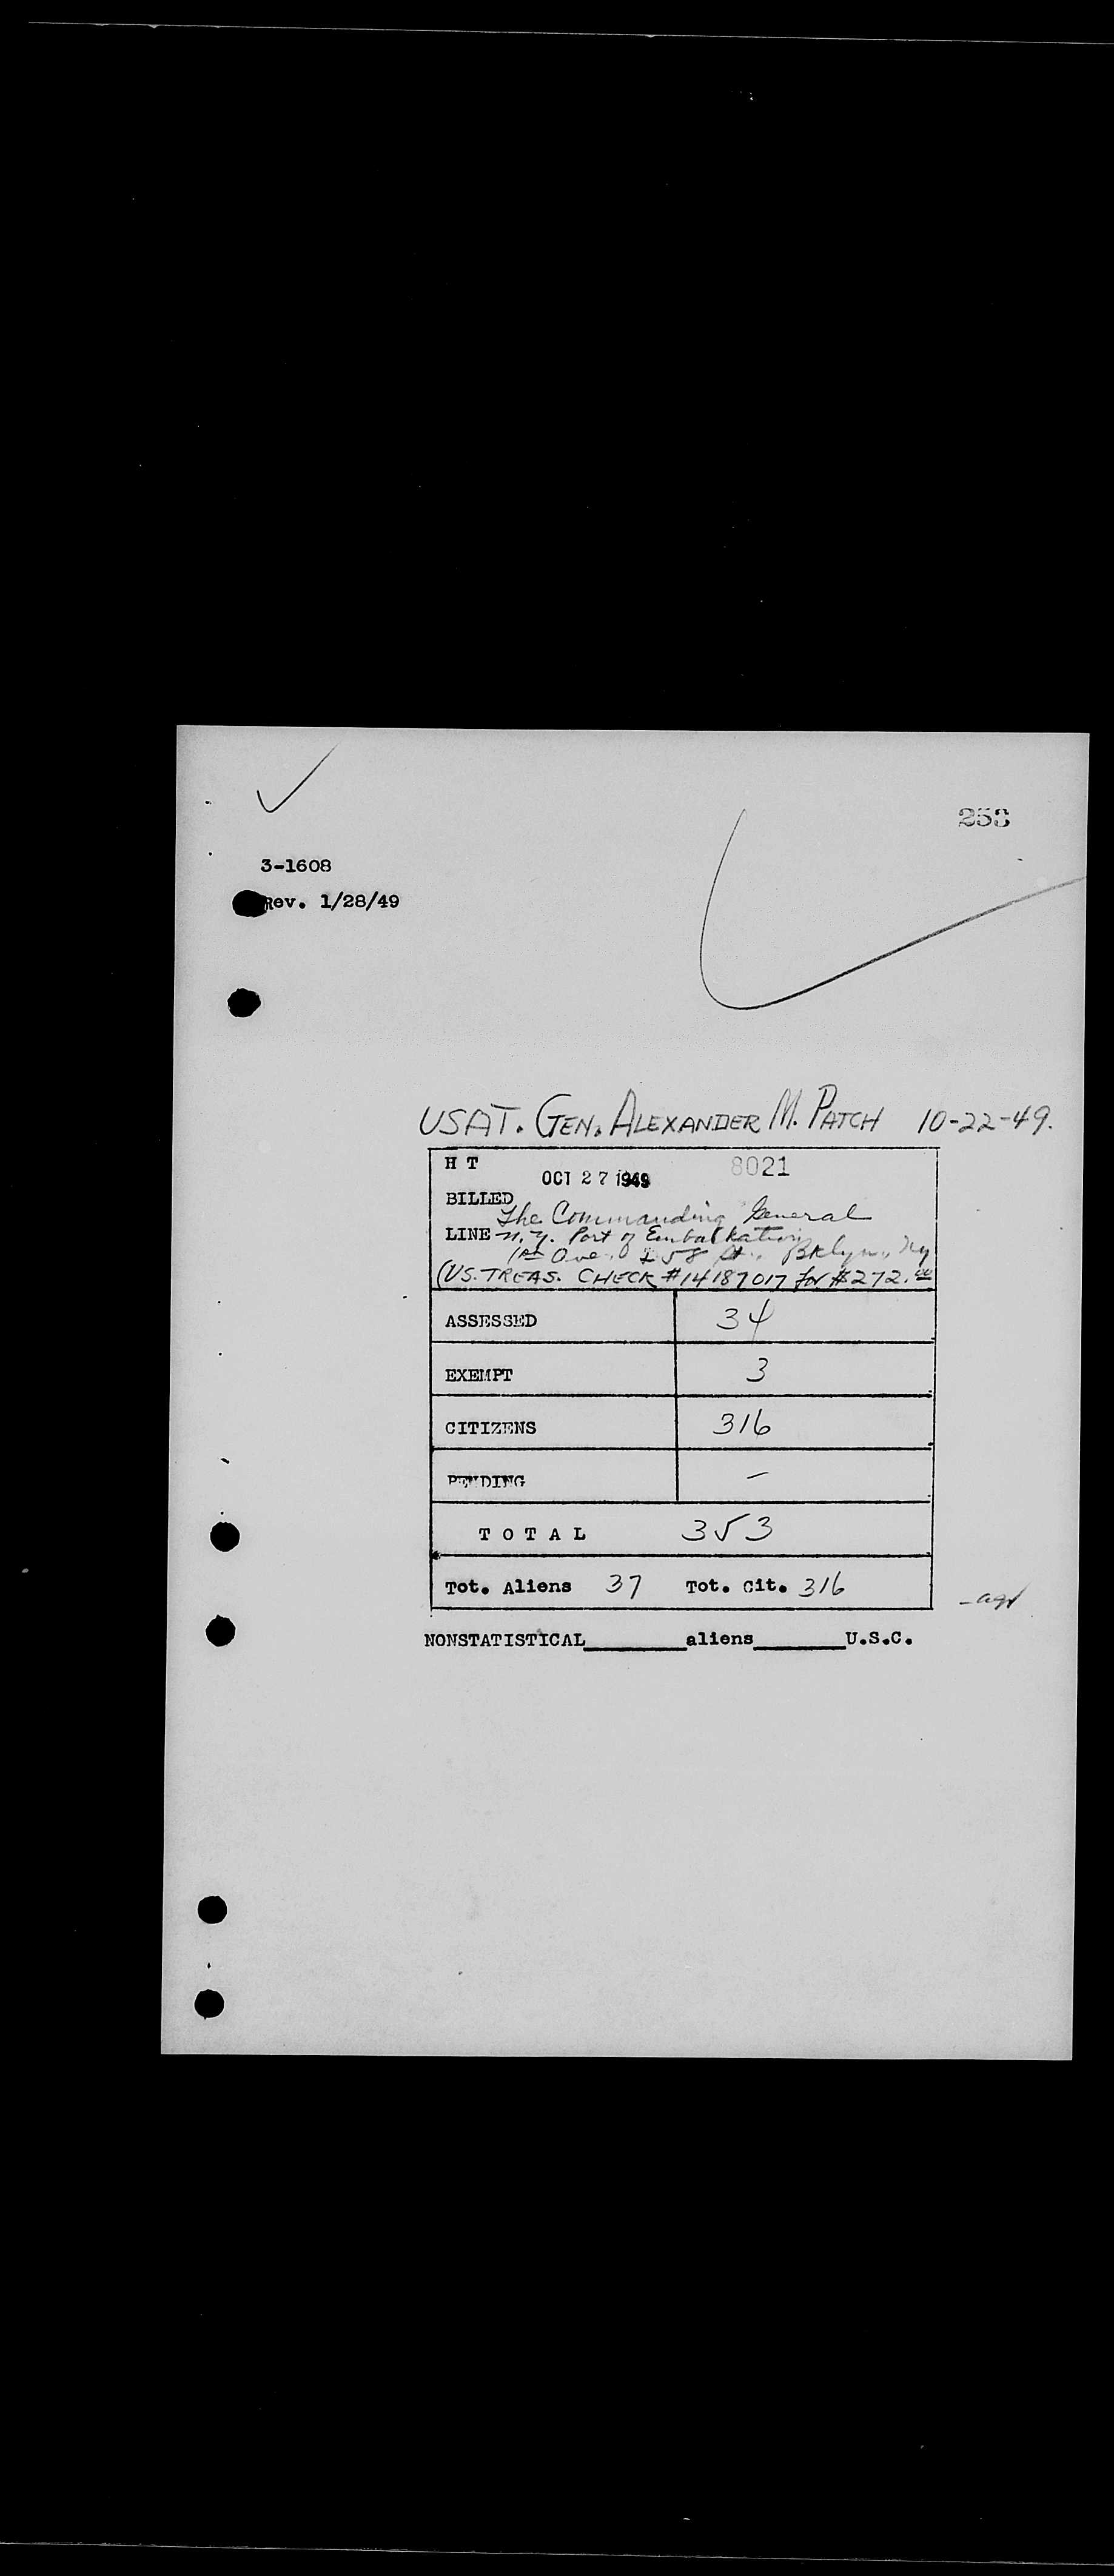 253
3-1608
Rev. 1/28/49
USAT. GEN. ALEXANDER M. PATCH 10-22-49.
H T OCT 27 1949 8021
BILLED
The Commanding General
LINE N.Y. Port of Embarkation
1st Ave. & 58 St., Bklyn., Ny
(U.S. TREAS. CHECK #14187017 for $272.00
ASSESSED 34
EXEMPT 3
CITIZENS 316
PENDING —
TOTAL 353
Tot. Aliens 37 Tot. Cit. 316
NONSTATISTICAL________aliens_______U.S.C.